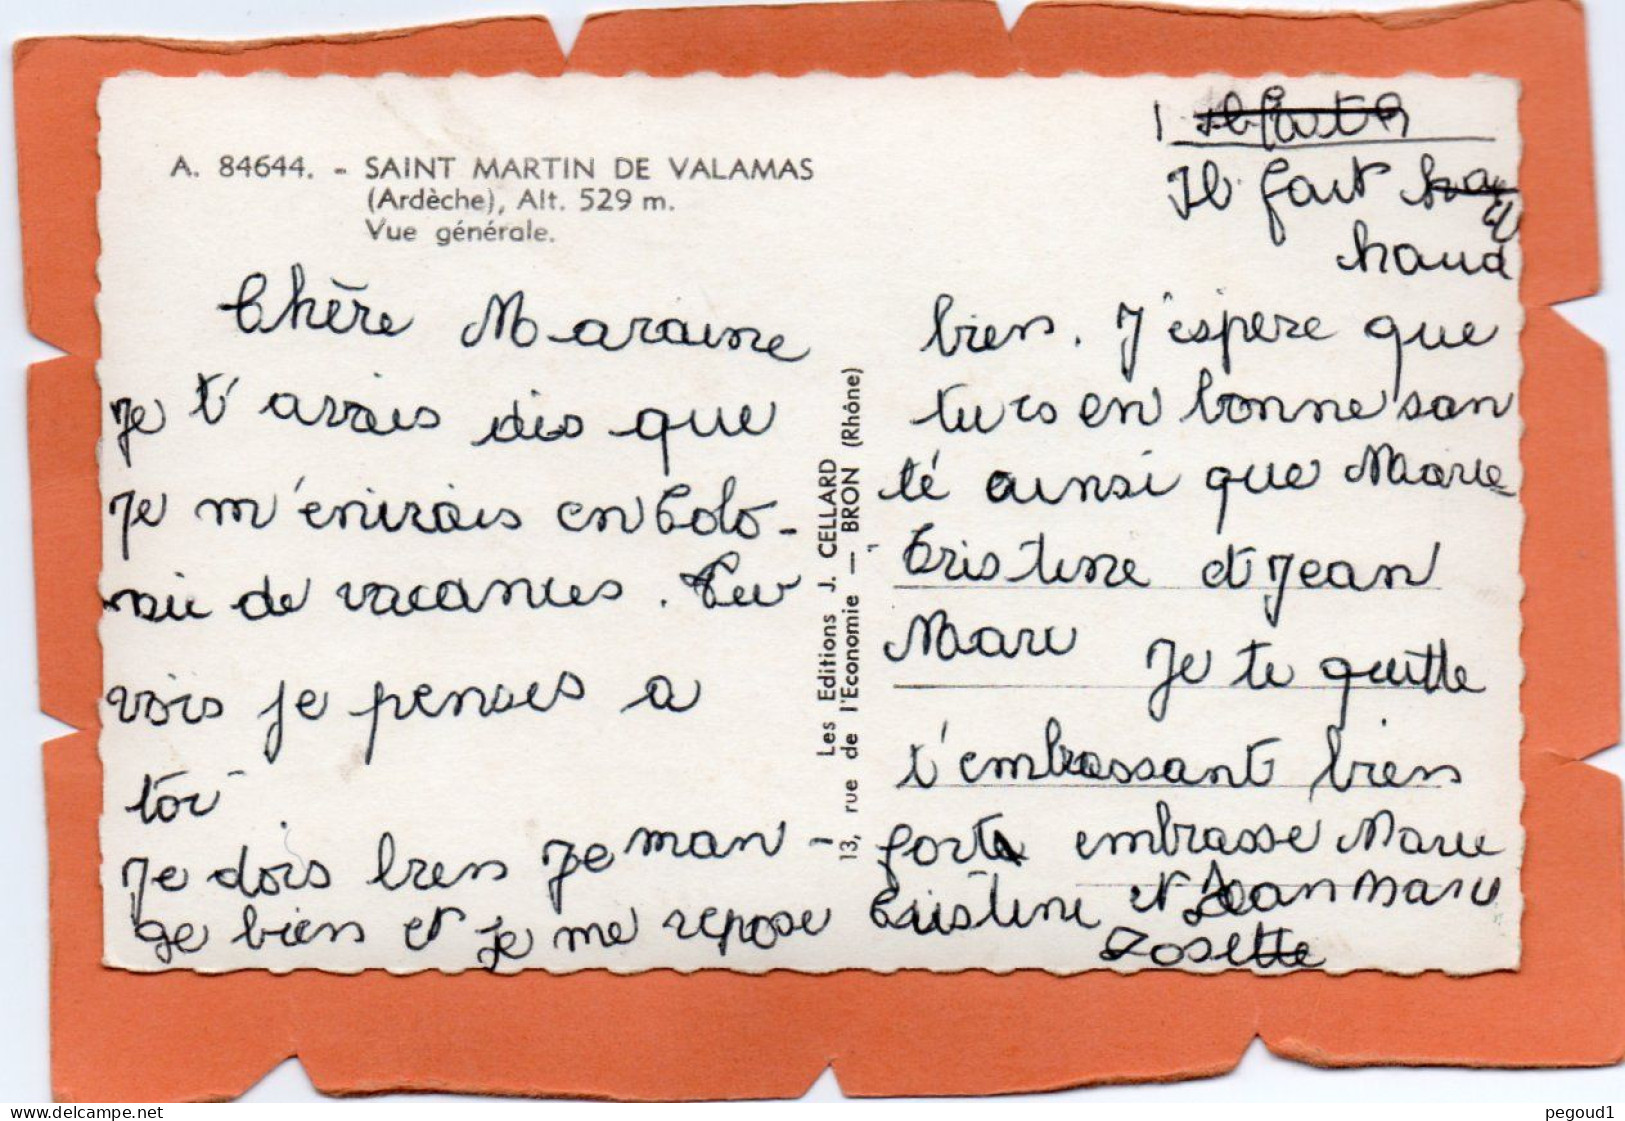 A. 84644. - SAINT MARTIN DE VALAMAS
(Ardèche), Alt. 529 m.
Vue générale.
Chère Maraine
Je t'avais dis que
Je m'enirais en Colo-
nie de vacances. Tu
vois je penses a
toi
Je dois bien Je man-
ge bien et je me repose
Les Editions J. CELLARD
13, rue de l'Economie — BRON (Rhône)
Il fait
Il fait
haud
bien. J'éspere que
tu es en bonne san
té ainsi que Marie
Cristine et Jean
Marc Je te quitte
t'embrassant bien
fort embrasse Marie
Cristine et Jean Marc
Josette
delcampe.net
pegoud1